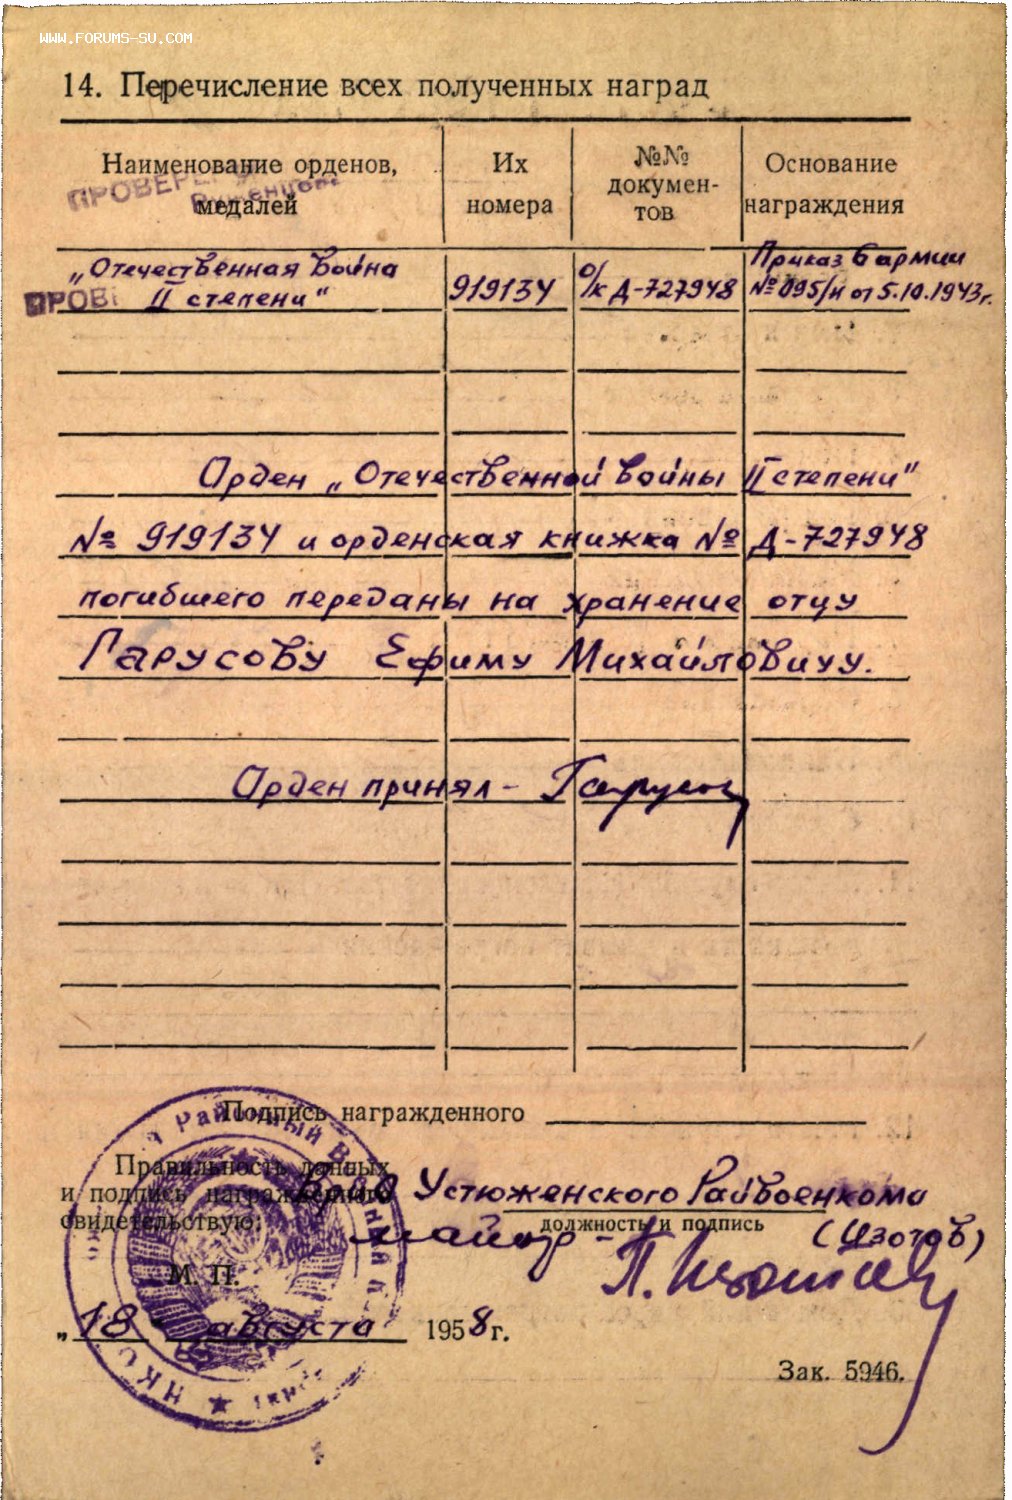 WWW.FORUMS-SU.COM
14. Перечисление всех полученных наград
Наименование орденов, медалей
Их номера
№№ докумен-
тов
Основание награждения
ПРОВЕРЕНО
„Отечественная война
II степени“
919134
о/к Д-727948
Приказ 6 армии
№ 095/н от 5.10.1943г.
ПРОВЕ
Орден „Отечественной войны II степени“
№ 919134 и орденская книжка № Д-727948
погибшего переданы на хранение отцу
Гарусову Ефиму Михайловичу.
Орден принял - Гарусов
Подпись награжденного
Правильность данных
и подпись награжденного
свидетельствую:
Врио Устюженского Райвоенкома
должность и подпись
майор - (Изотов)
М. П.
„18“ августа 1958г.
Зак. 5946.
Районный Военный
НКО